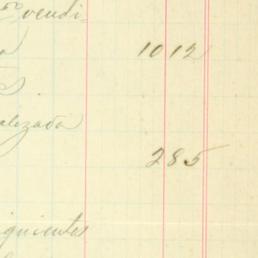 vendi-
1012
alizada
285
iguientes